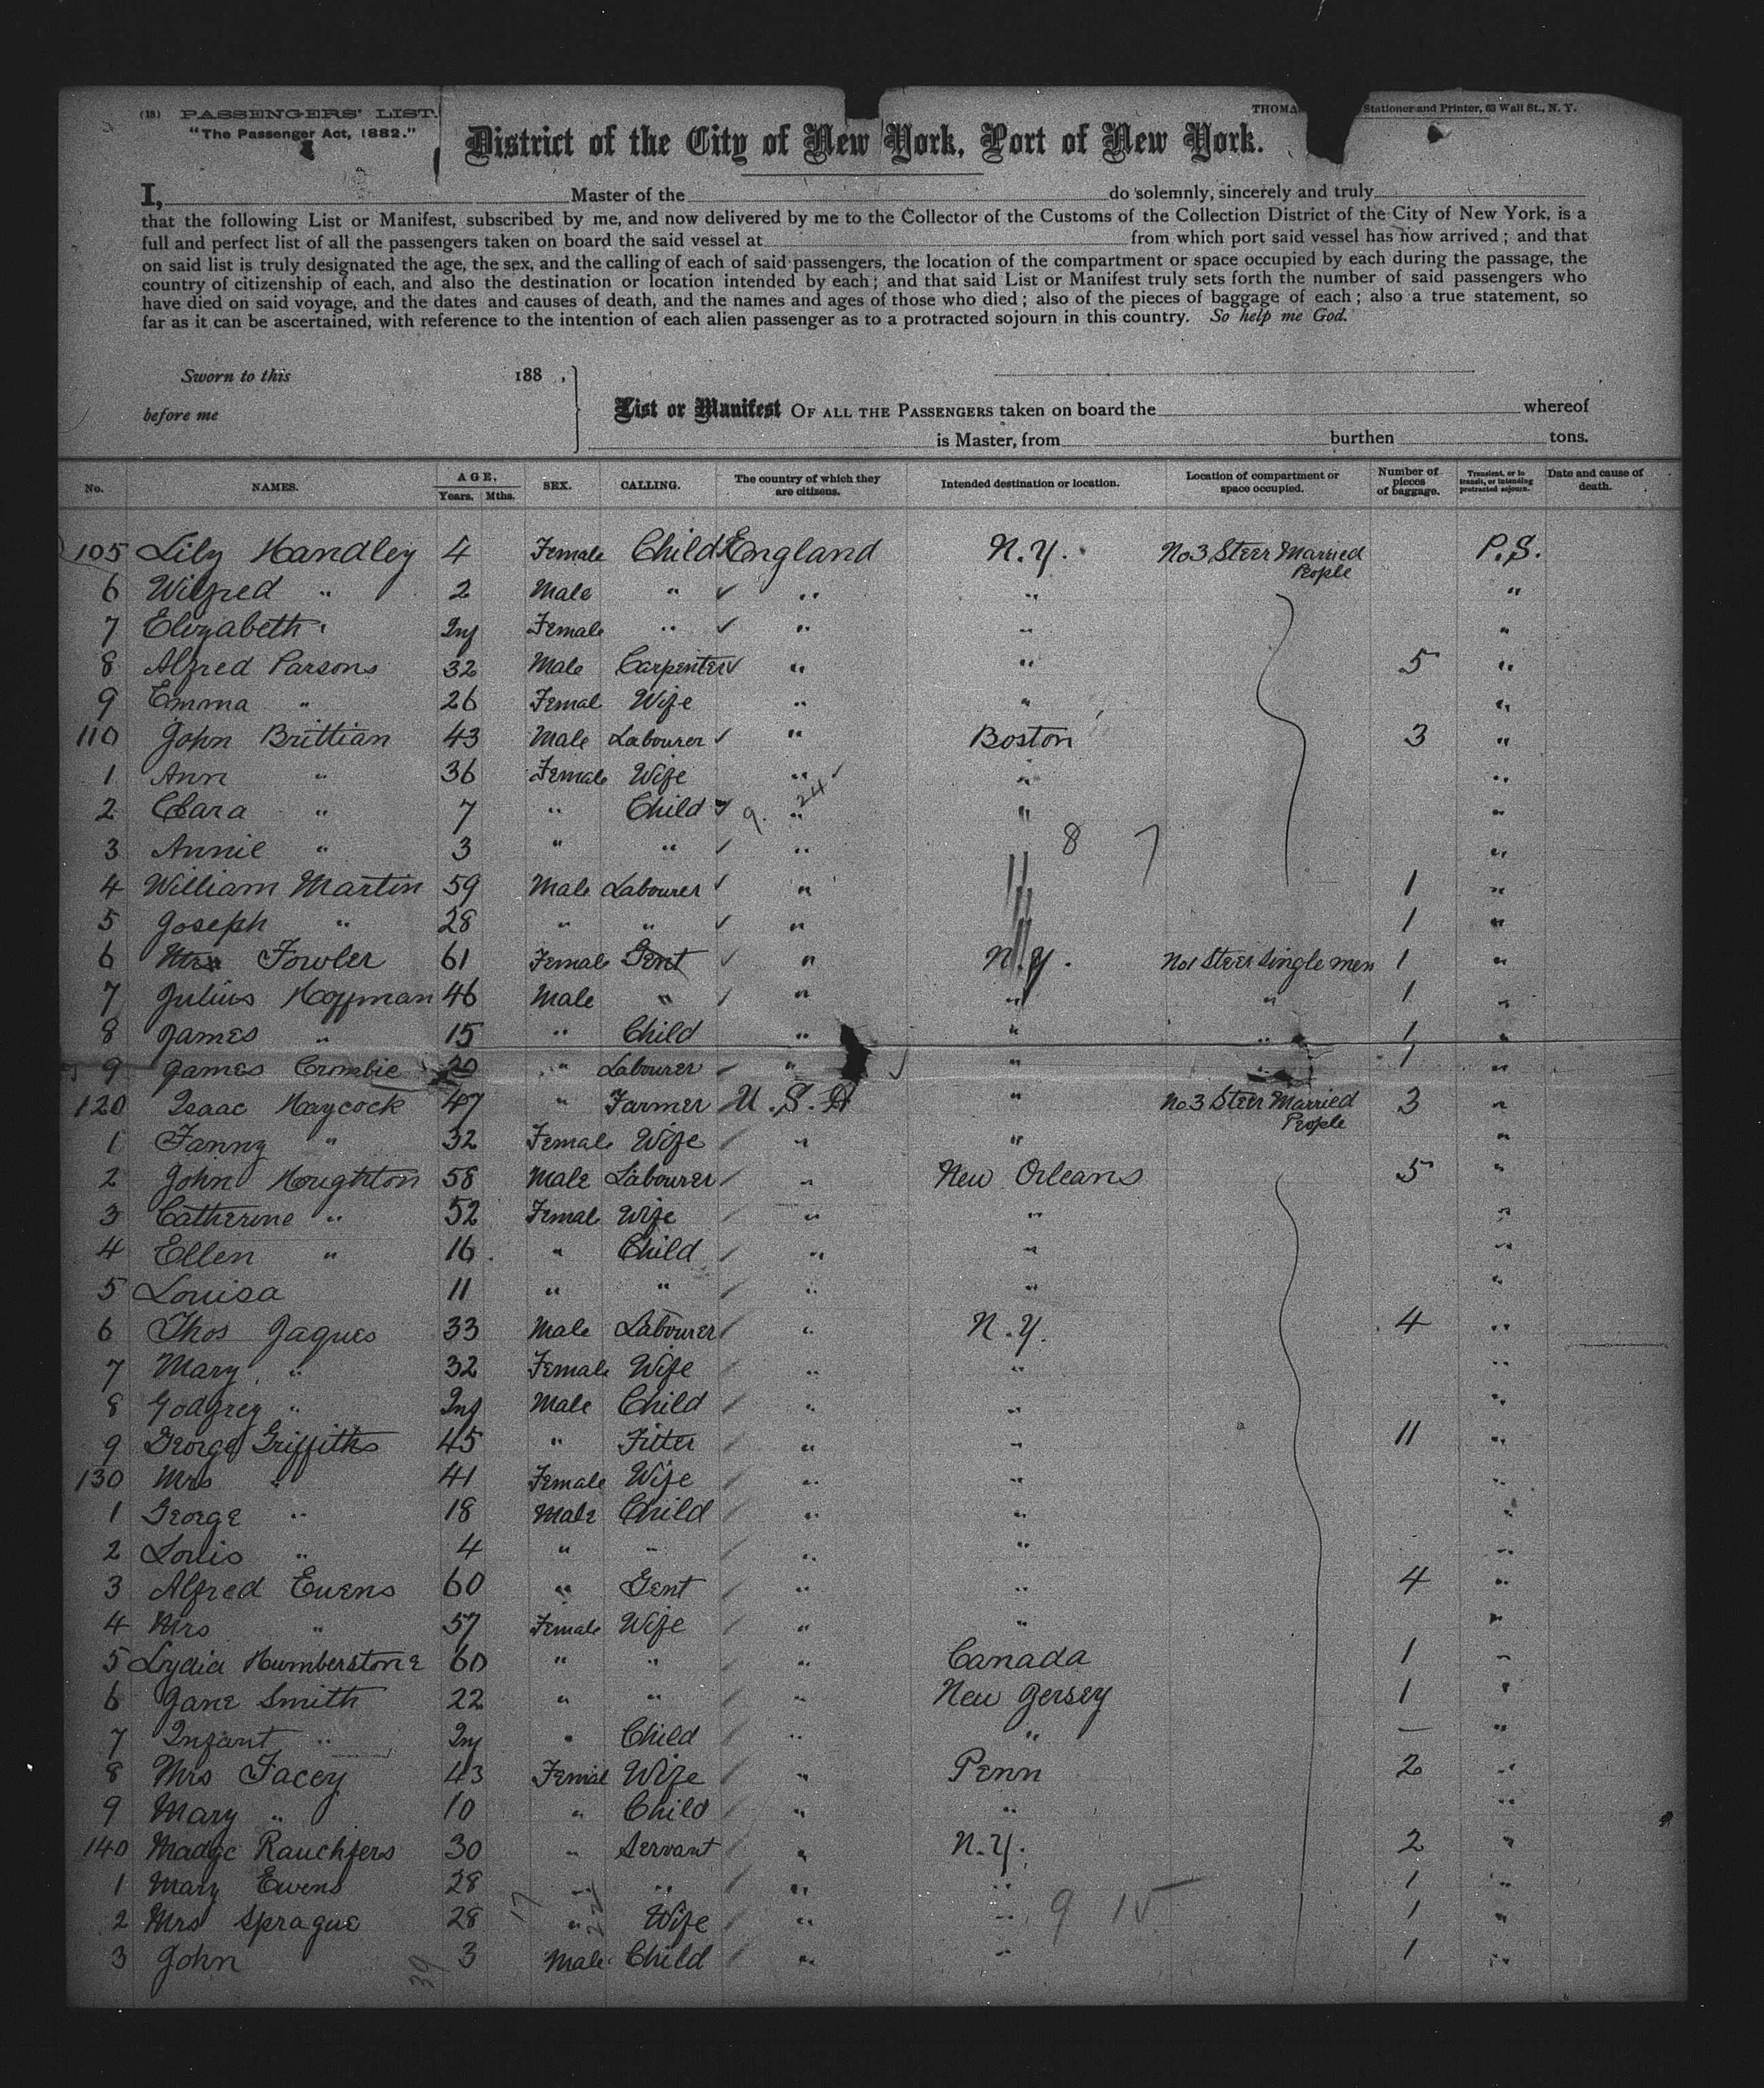 (18) PASSENGERS' LIST.
"The Passenger Act, 1882."
THOMA Stationer and Printer, 63 Wall St., N. Y.
District of the City of New York, Port of New York.
I, Master of the do solemnly, sincerely and truly
that the following List or Manifest, subscribed by me, and now delivered by me to the Collector of the Customs of the Collection District of the City of New York, is a
full and perfect list of all the passengers taken on board the said vessel at from which port said vessel has now arrived; and that
on said list is truly designated the age, the sex, and the calling of each of said passengers, the location of the compartment or space occupied by each during the passage, the
country of citizenship of each, and also the destination or location intended by each; and that said List or Manifest truly sets forth the number of said passengers who
have died on said voyage, and the dates and causes of death, and the names and ages of those who died; also of the pieces of baggage of each; also a true statement, so
far as it can be ascertained, with reference to the intention of each alien passenger as to a protracted sojourn in this country. So help me God.
Sworn to this 188 ,
before me
List or Manifest OF ALL THE PASSENGERS taken on board the whereof
is Master, from burthen tons.
No. NAMES. AGE. Years. Mths. SEX. CALLING. The country of which they are citizens. Intended destination or location. Location of compartment or space occupied. Number of pieces of baggage. Transient, or in transit, or intending protracted sojourn. Date and cause of death.
105 Lily Handley 4 Female Child England N.Y. No3 Steer Married People P.S.
6 Wilfred " 2 Male " " " "
7 Elizabeth " Inf Female " " " "
8 Alfred Parsons 32 Male Carpenter " " 5 "
9 Emma " 26 Femal Wife " " "
110 John Brittian 43 Male Labourer " Boston 3 "
1 Ann " 36 Female Wife " " "
2 Clara " 7 " Child 9. 24 " " "
3 Annie " 3 " " " 8 7 "
4 William Martin 59 Male Labourer " 1 "
5 Joseph " 28 " " " 1 "
6 Mrs Fowler 61 Female Gent " N.Y. No1 Steer Single men 1 "
7 Julius Hoffman 46 Male " " " " 1 "
8 James " 15 " Child " " " 1 "
9 James Crombie 20 " Labourer " " " 1 "
120 Isaac Haycock 47 " Farmer U.S.A " No3 Steer Married People 3 "
1 Fanny " 32 Female Wife " " "
2 John Houghton 58 Male Labourer " New Orleans 5 "
3 Catherine " 52 Female Wife " " "
4 Ellen " 16 " Child " " "
5 Louisa 11 " " " " "
6 Thos Jaques 33 Male Labourer " N.Y. 4 "
7 Mary " 32 Female Wife " " "
8 Godfrey " Inf Male Child " " "
9 George Griffiths 45 " Fitter " " 11 "
130 Mrs " 41 Female Wife " " "
1 George " 18 Male Child " " "
2 Louis " 4 " " " " "
3 Alfred Ewens 60 " Gent " " 4 "
4 Mrs " 57 Female Wife " " "
5 Lydia Humberstone 60 " " " Canada 1 "
6 Jane Smith 22 " " " New Jersey 1 "
7 Infant " Inf " Child " " — "
8 Mrs Facey 43 Femal Wife " Penn 2 "
9 Mary " 10 " Child " " "
140 Madge Rauchfers 30 " Servant " N.Y. 2 "
1 Mary Ewens 28 " " " " 1 "
2 Mrs Sprague 28 17 " 22 Wife " " 9 15 1 "
3 John 39 3 Male Child " " 1 "